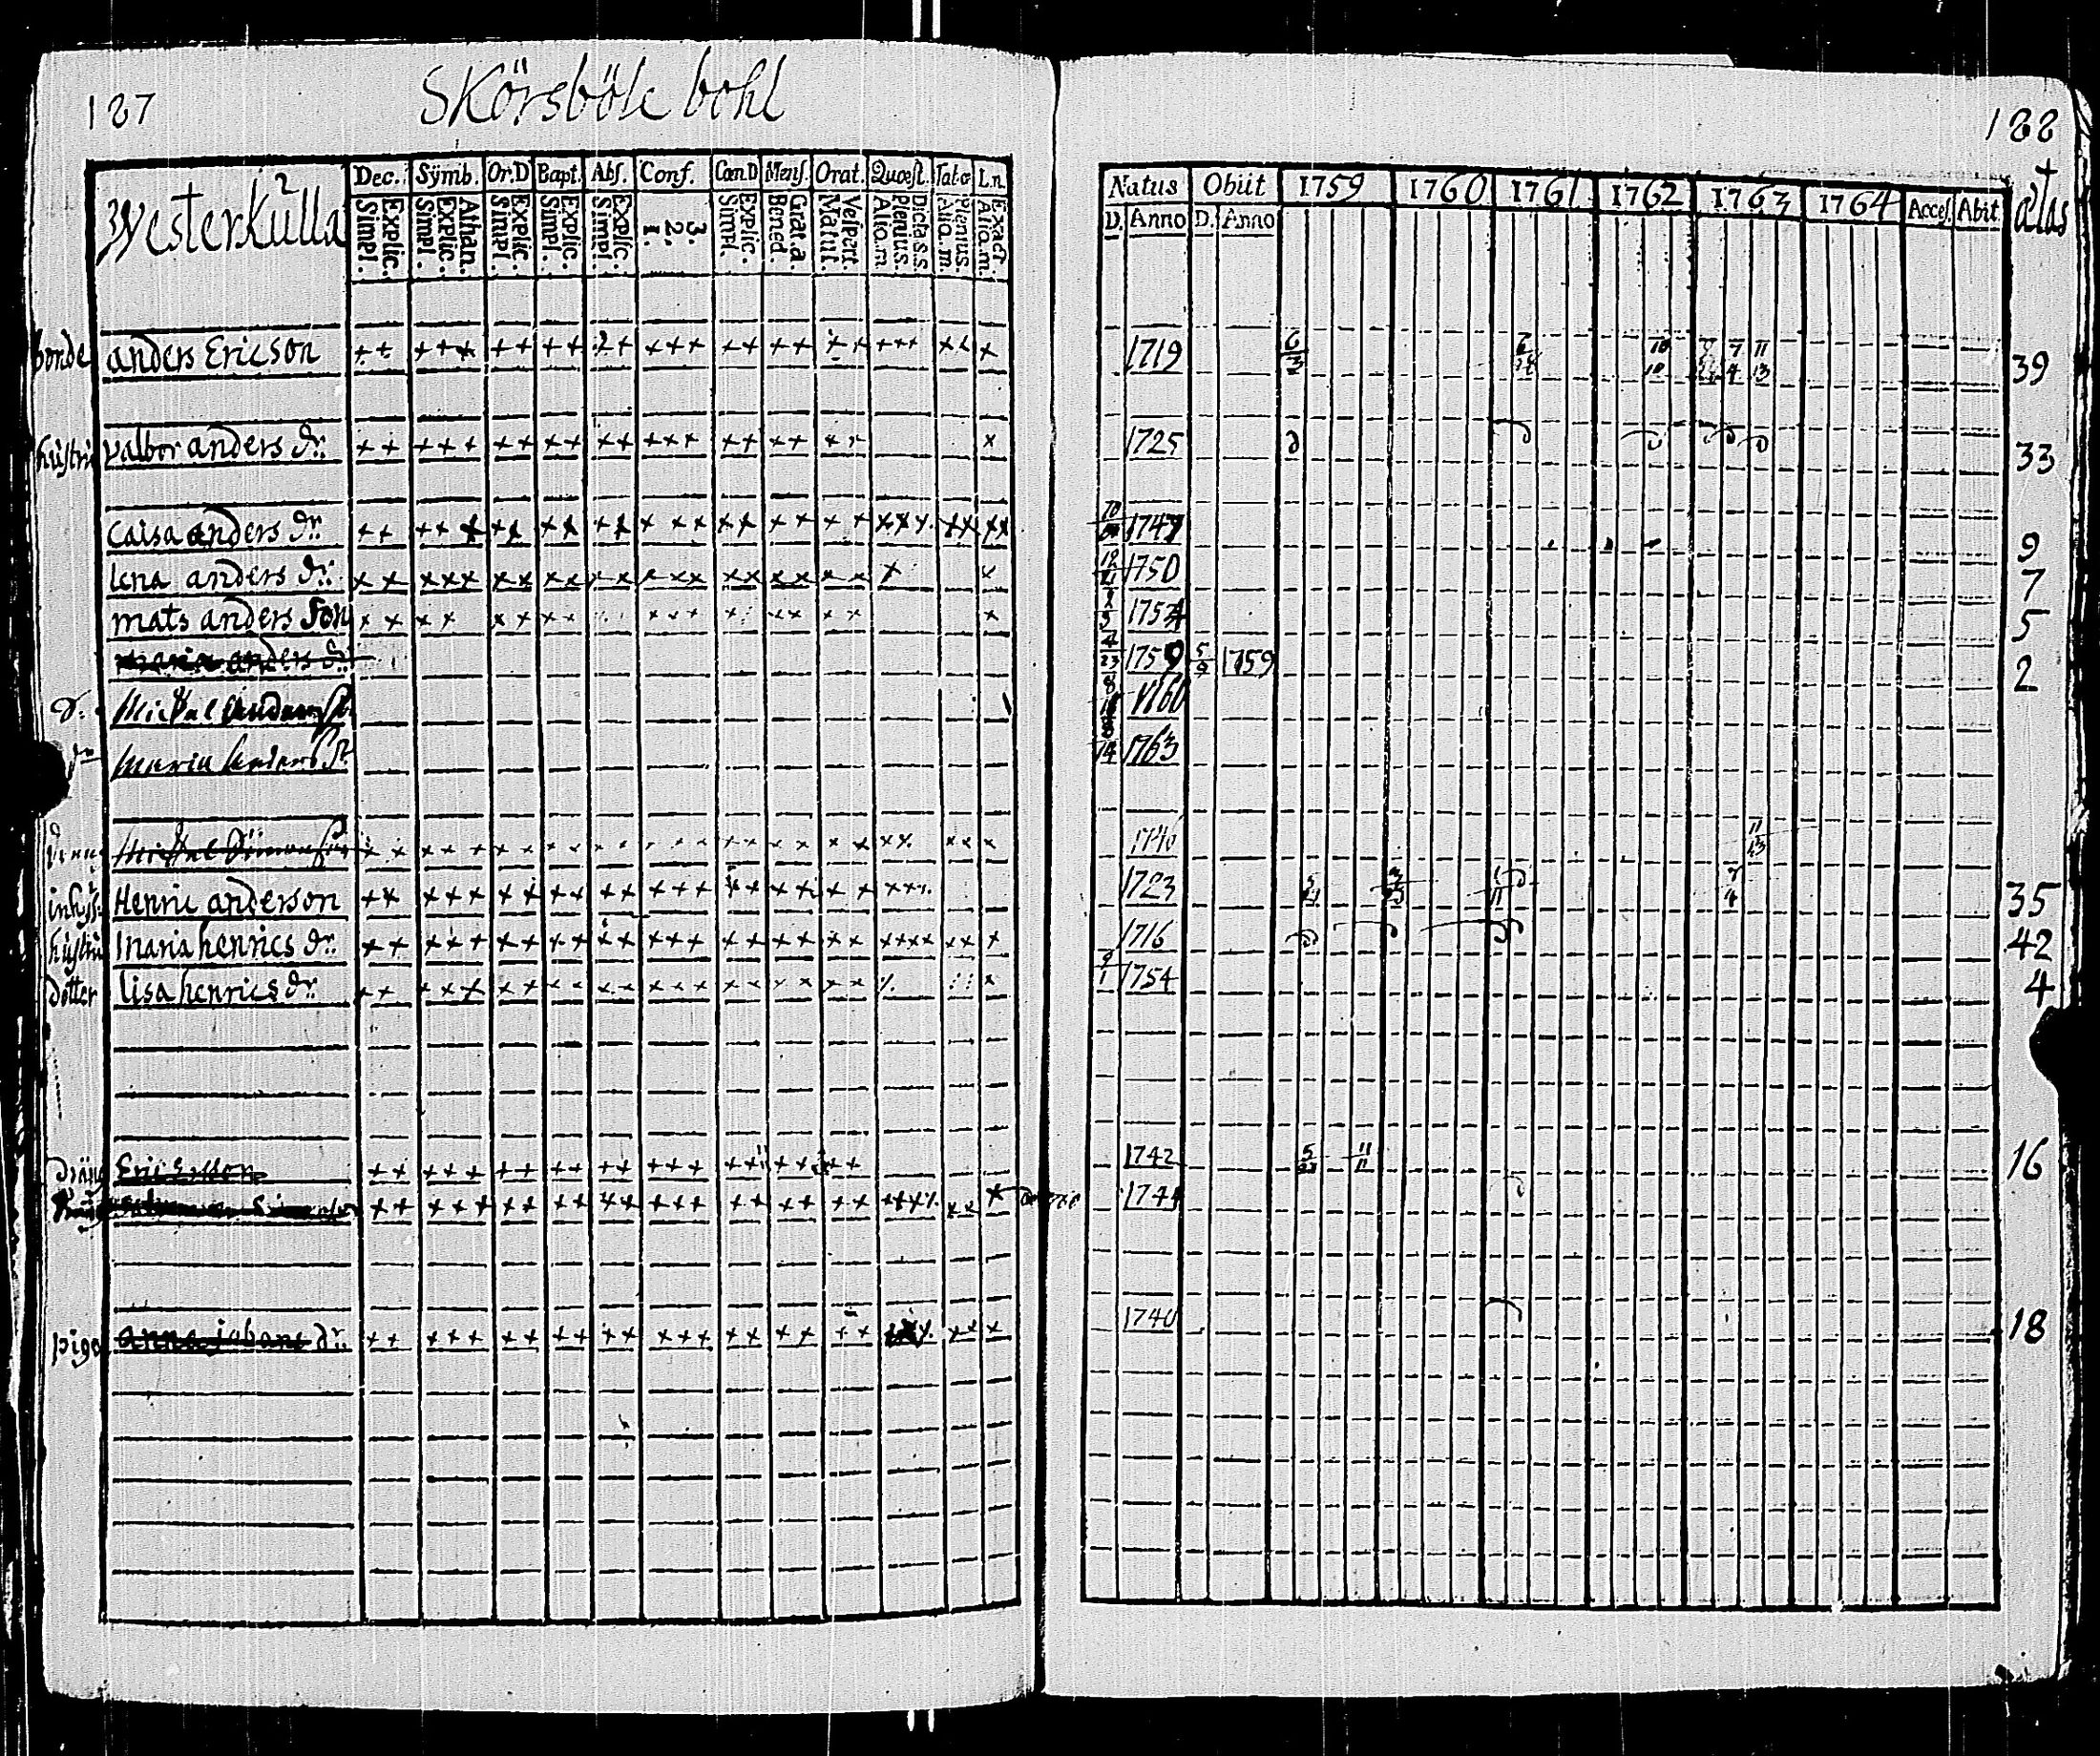 187 Skörsböle bohl 188
ætas
Vesterkulla 2 Dec. Symb. Or.D Bapt. Abs. Conf. Cœn.D Mens. Orat. Quæst. Tab.œ L.n. Natus Obiit 1759 1760 1761 1762 1763 1764 Acces. Abit.
Explic. Simpl. Athan. Explic. Simpl. Explic. Simpl. Explic. Simpl. Explic. Simpl. 3. 2. 1. Explic. Simpl. Grat.a. Bened. Vespert. Matut. Dicta s.s. Plenius. Aliq.m. Plenius. Aliq.m. Exact. Aliq.m. D. Anno D. Anno
bonde anders Ericson ++ +++ ++ ++ ++ +++ ++ ++ ++ +++ ++ + 1719 6/3 39
hustru valbor anders dr. ++ +++ ++ ++ ++ +++ ++ ++ ++ + 1725 33
Caisa anders dr. ++ +++ ++ ++ ++ +++ ++ ++ ++ +++ ++ ++ 9
lena anders dr. ++ +++ ++ ++ ++ +++ ++ ++ ++ + + 12/21 1750 7
mats anders son ++ ++ ++ ++ +++ + ++ ++ + 1754 5
maria anders dr. 4/23 1759 5/9 1759 2
d. Michel Anders 1760
dr Maria Anders dr. 14 1763
Michel Simonson ++ +++ ++ ++ ++ +++ ++ ++ ++ ++ ++ + 11/13
inhys. Henric anderson ++ +++ ++ ++ ++ +++ ++ ++ ++ +++ 1723 35
hustru Maria henrics dr. ++ +++ ++ ++ ++ +++ ++ ++ ++ ++++ ++ + 1716 42
dotter lisa henrics dr. ++ +++ ++ ++ ++ +++ ++ ++ ++ + 9/1 1754 4
dräng Eric Ersson ++ +++ ++ ++ ++ +++ ++ ++ ++ 1742 11/11 16
Simonson ++ +++ ++ ++ ++ +++ ++ ++ ++ ++++ ++ + 1744
piga anna johans dr. ++ +++ ++ ++ ++ +++ ++ ++ ++ ++ + 1740 18